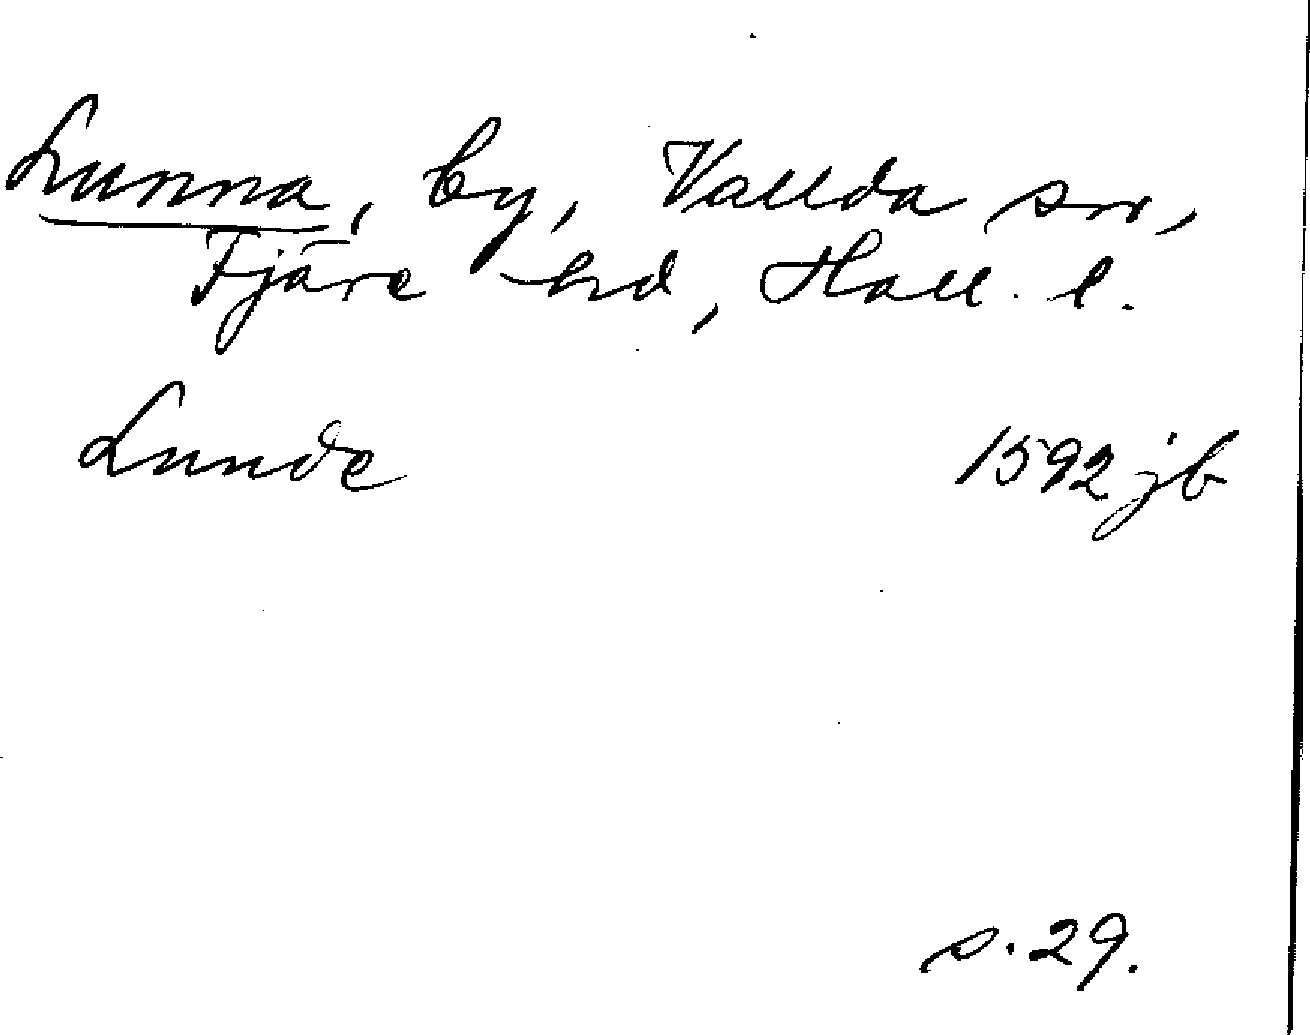 Lunna, by, Vallda sn,
Fjäre hd, Hall. l.
Lunde 1592 jb
s. 29.